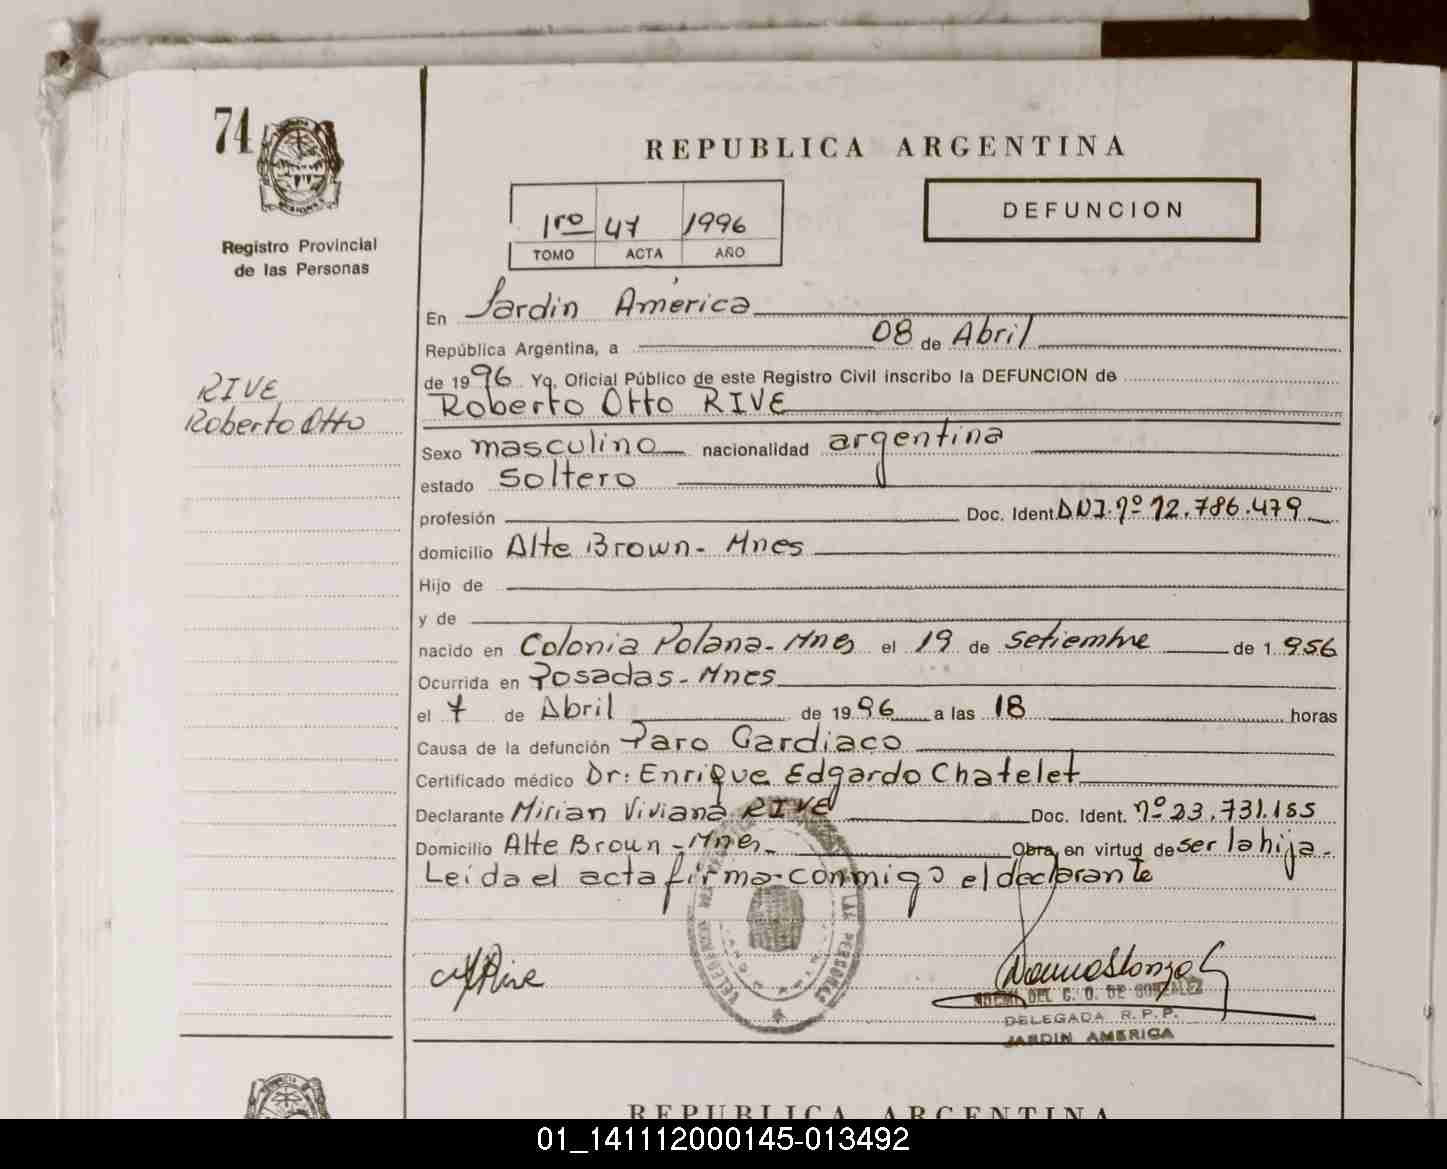 74
REPUBLICA ARGENTINA
1ro 47 1996
TOMO ACTA AÑO
DEFUNCION
Registro Provincial
de las Personas
En Jardin América
República Argentina, a 08 de Abril
de 1996 Yo, Oficial Público de este Registro Civil inscribo la DEFUNCION de
RIVE
Roberto Otto
Roberto Otto RIVE
Sexo masculino nacionalidad argentina
estado Soltero
profesión Doc. Ident. DNI. nº 12.786.479
domicilio Alte Brown - Mnes
Hijo de
y de
nacido en Colonia Polana - Mnes el 19 de setiembre de 1956
Ocurrida en Posadas - Mnes
el 7 de Abril de 1996 a las 18 horas
Causa de la defunción Paro Cardiaco
Certificado médico Dr: Enrique Edgardo Chatelet
Declarante Mirian Viviana RIVE Doc. Ident. nº 23.731.155
Domicilio Alte Broun - Mnes Obra en virtud de ser la hija.
Leída el acta firma conmigo el declarante
DEL C. O. DE GONZALEZ
DELEGADA R. P. P.
JARDIN AMERICA
REPUBLICA ARGENTINA
01_141112000145-013492